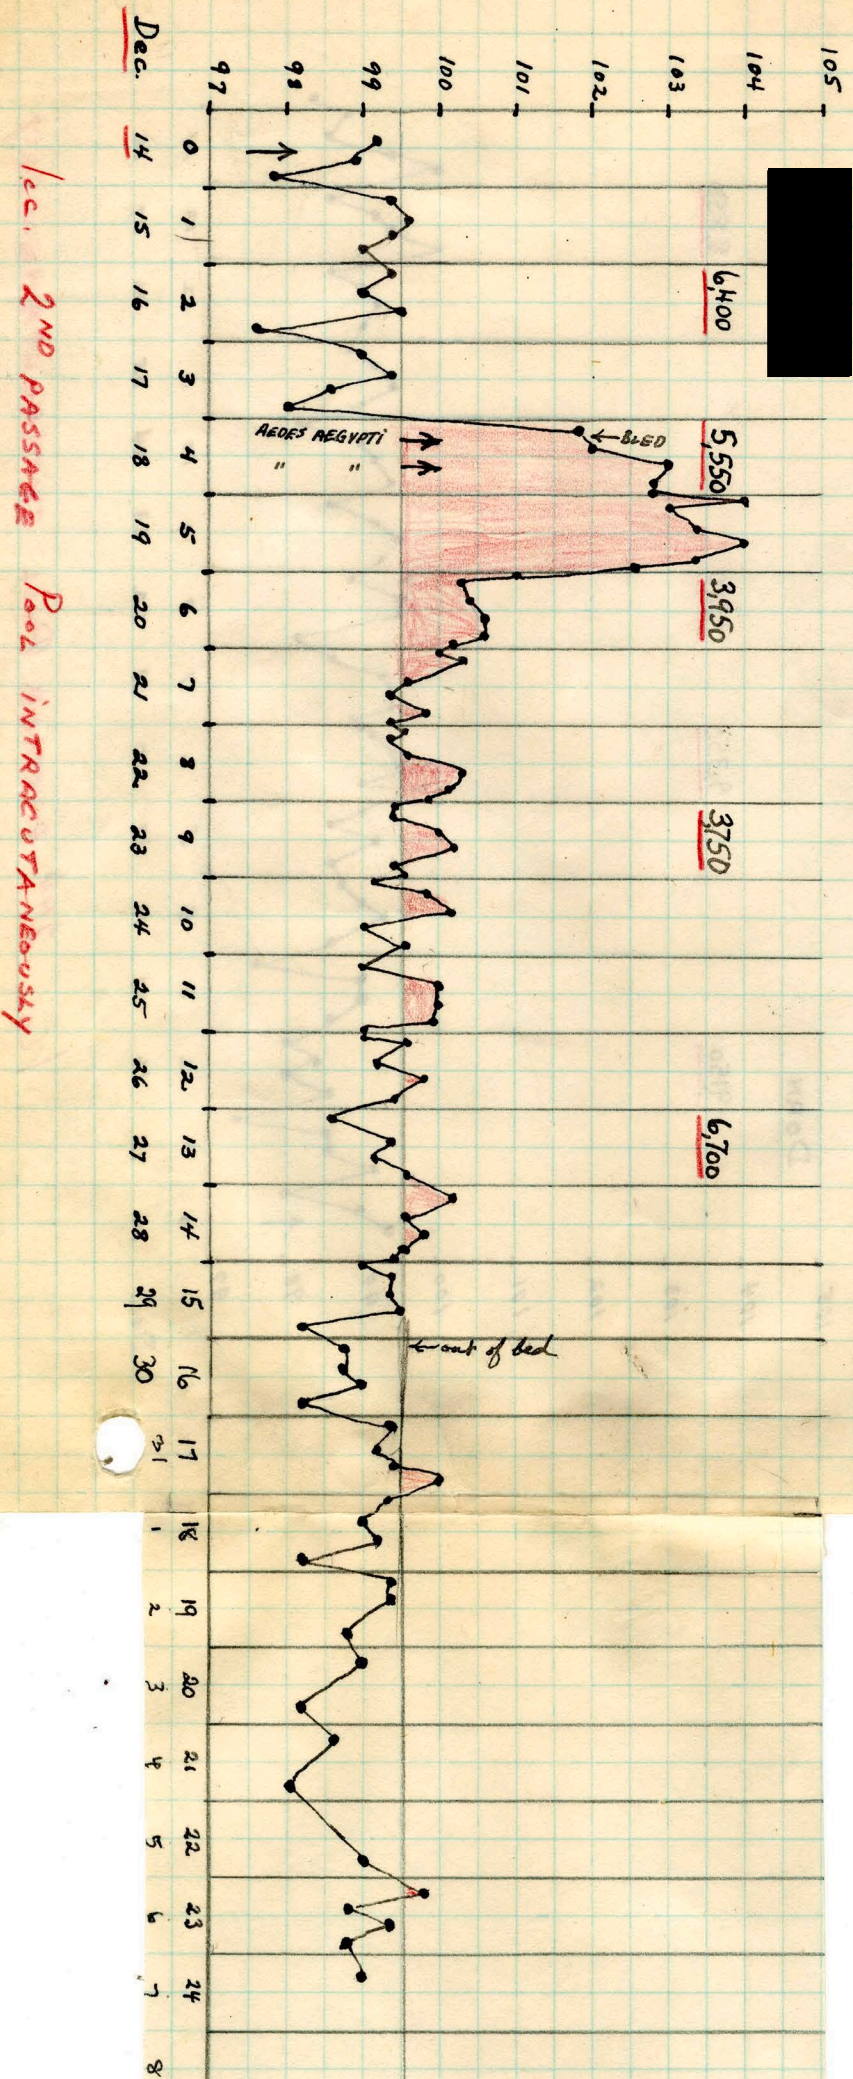 105
104
103
102
101
100
99
98
97
6,400
5,550
3,950
3,750
6,700
←BLED
AEDES AEGYPTI → 
" " →
←out of bed
0 1 2 3 4 5 6 7 8 9 10 11 12 13 14 15 16 17 18 19 20 21 22 23 24
Dec. 14 15 16 17 18 19 20 21 22 23 24 25 26 27 28 29 30 31 1 2 3 4 5 6 7 8
1cc. 2ND PASSAGE POOL INTRACUTANEOUSLY